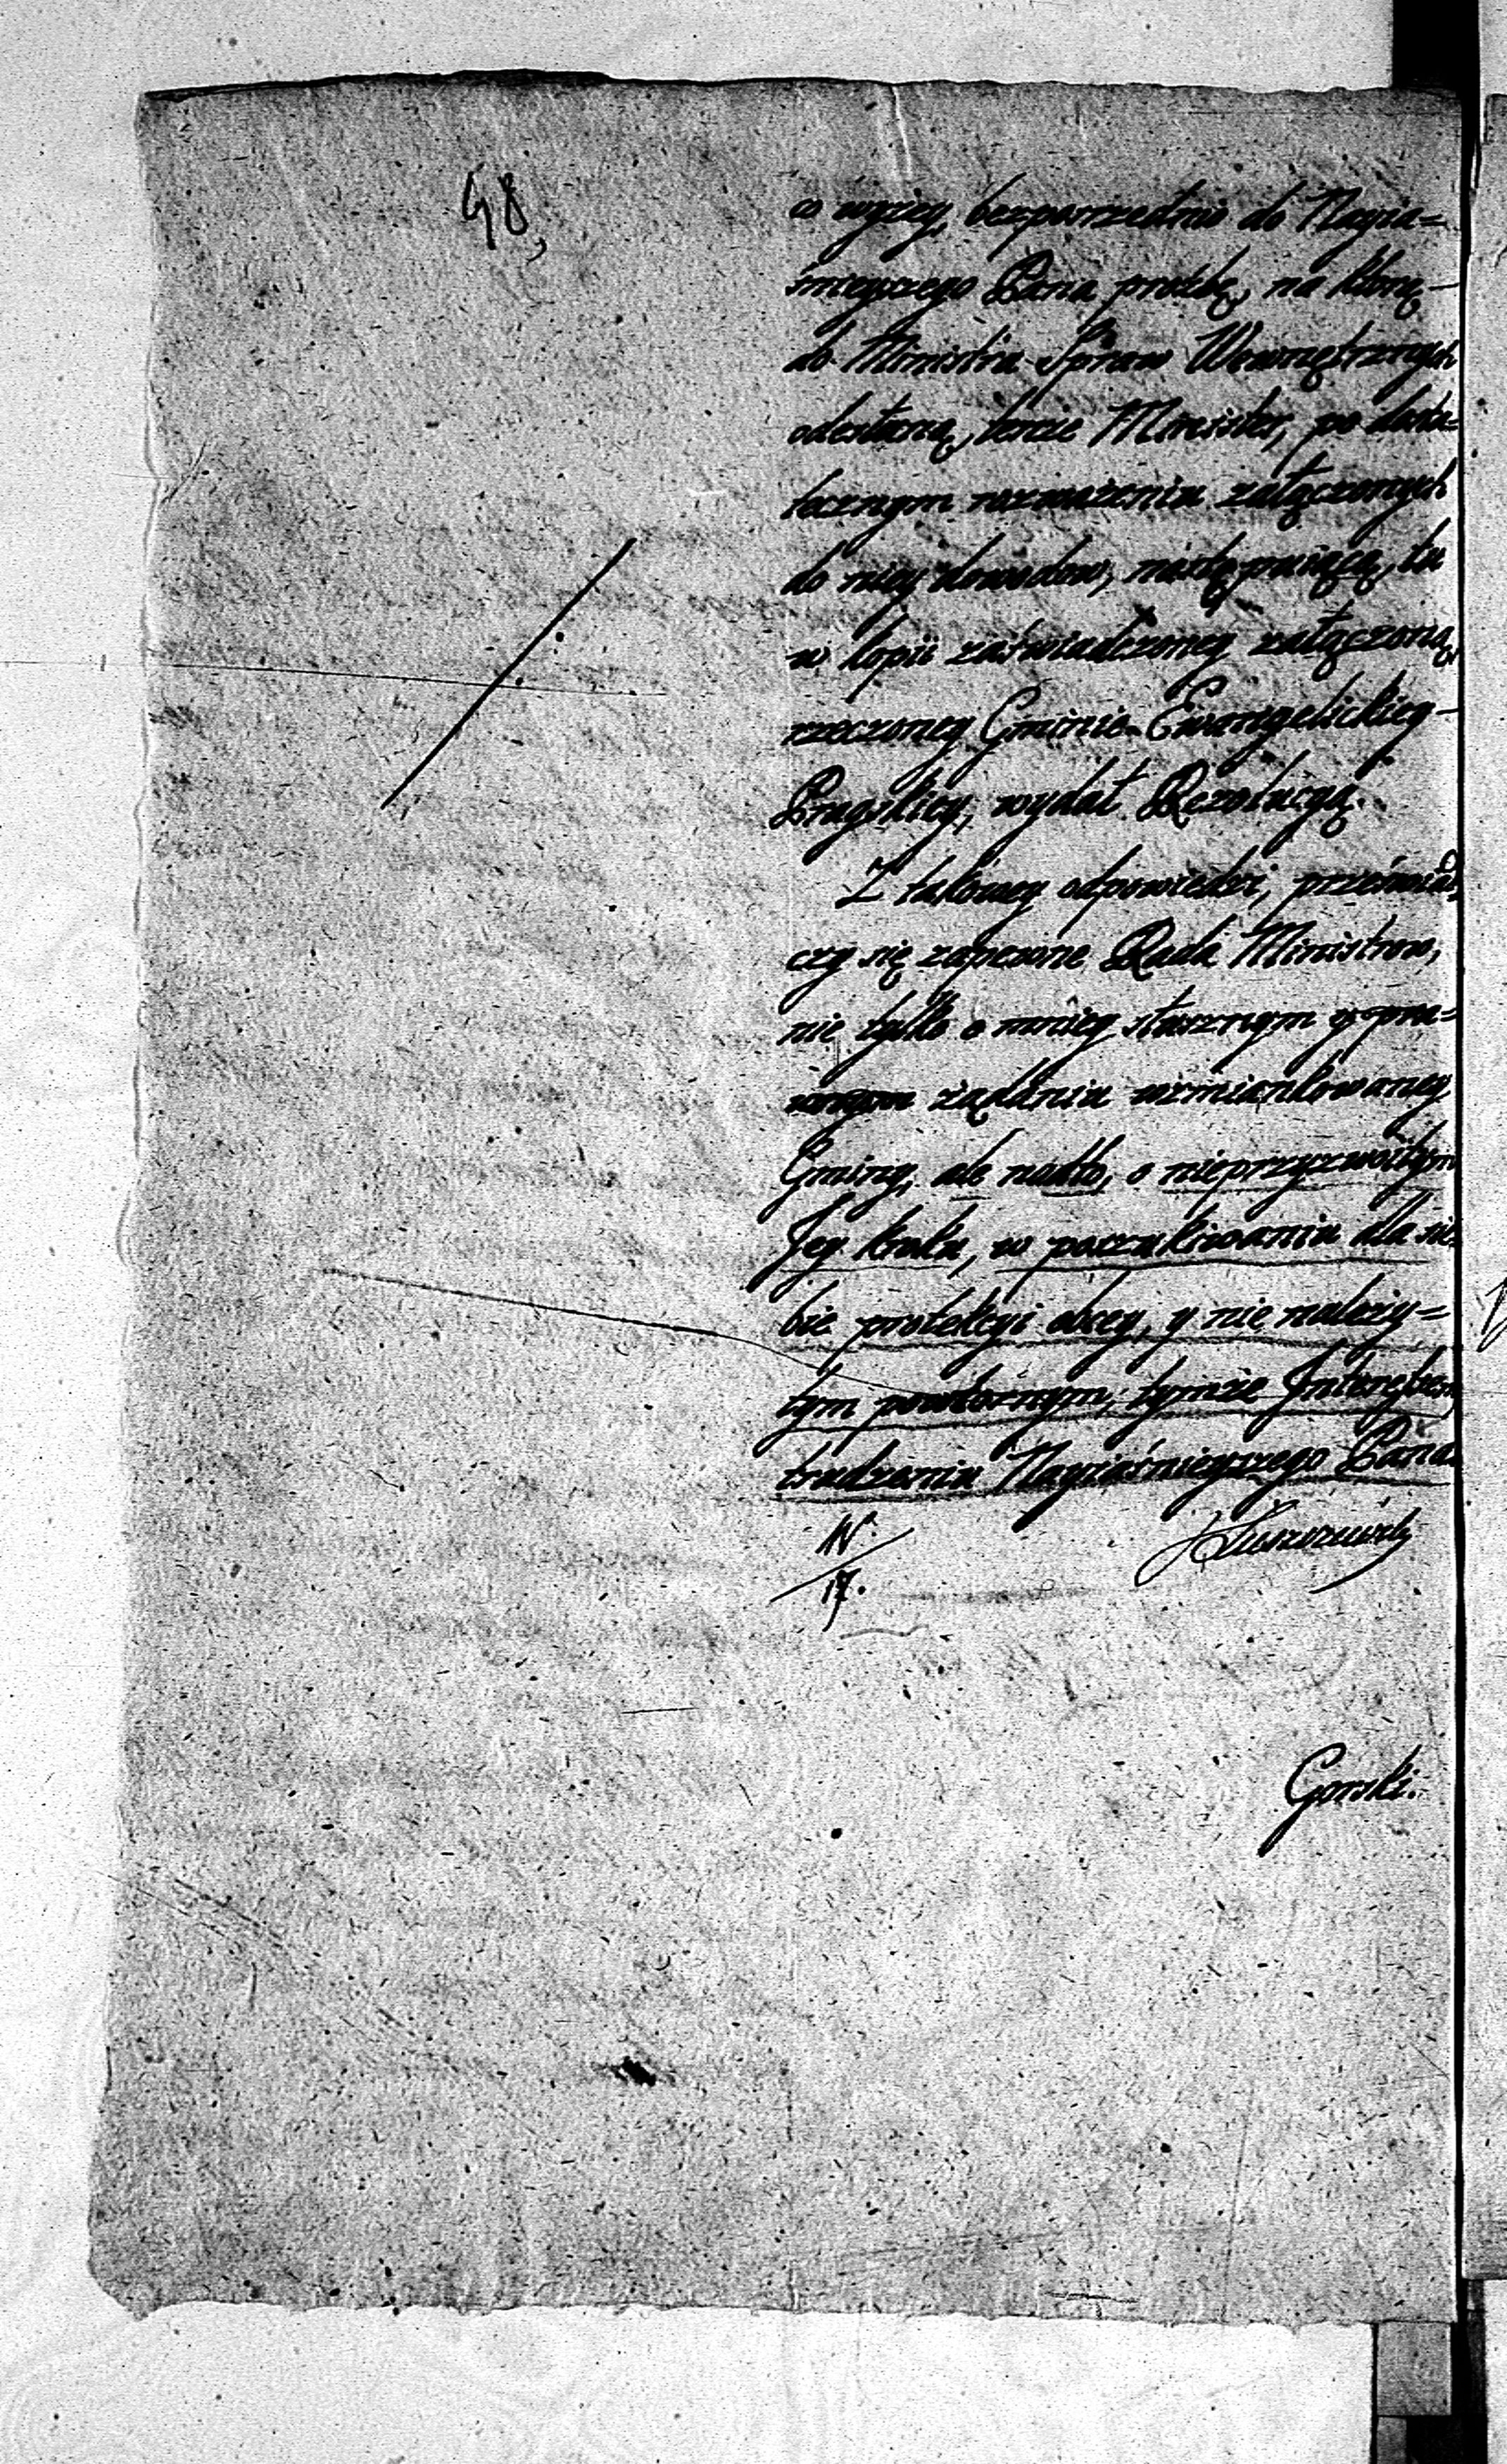 48,
co wyżey, bezpośrzednio do Nayia=
śnieyszego Pana prośbę, na którą
do Ministra Spraw Wewnętrznych
odesłaną, tenże Minister, po dosta=
tecznym rozważeniu załączonych
do niey dowodow, następuiącą, tu
w kopii zaświadczoney załączoną,
rzeczoney Gminie Ewangelickiey
Pragskiey, wydał Rezolucyą.
Z takowey odpowiedzi, przeświad=
czy się zapewne Rada Ministrow,
nie tylko o mniey słusznym y pra=
wnym żądaniu wzmiankowaney
Gminy, ale nadto, o nieprzyzwoitym
Jey kroku, w poszukiwaniu dla sie=
bie protekcyi obcey, y nie należy=
tym powtornym, tymże Interessem
trudzeniu Nayiaśnieyszego Pana.
N.
17.
Łuszczewski
Gorski.